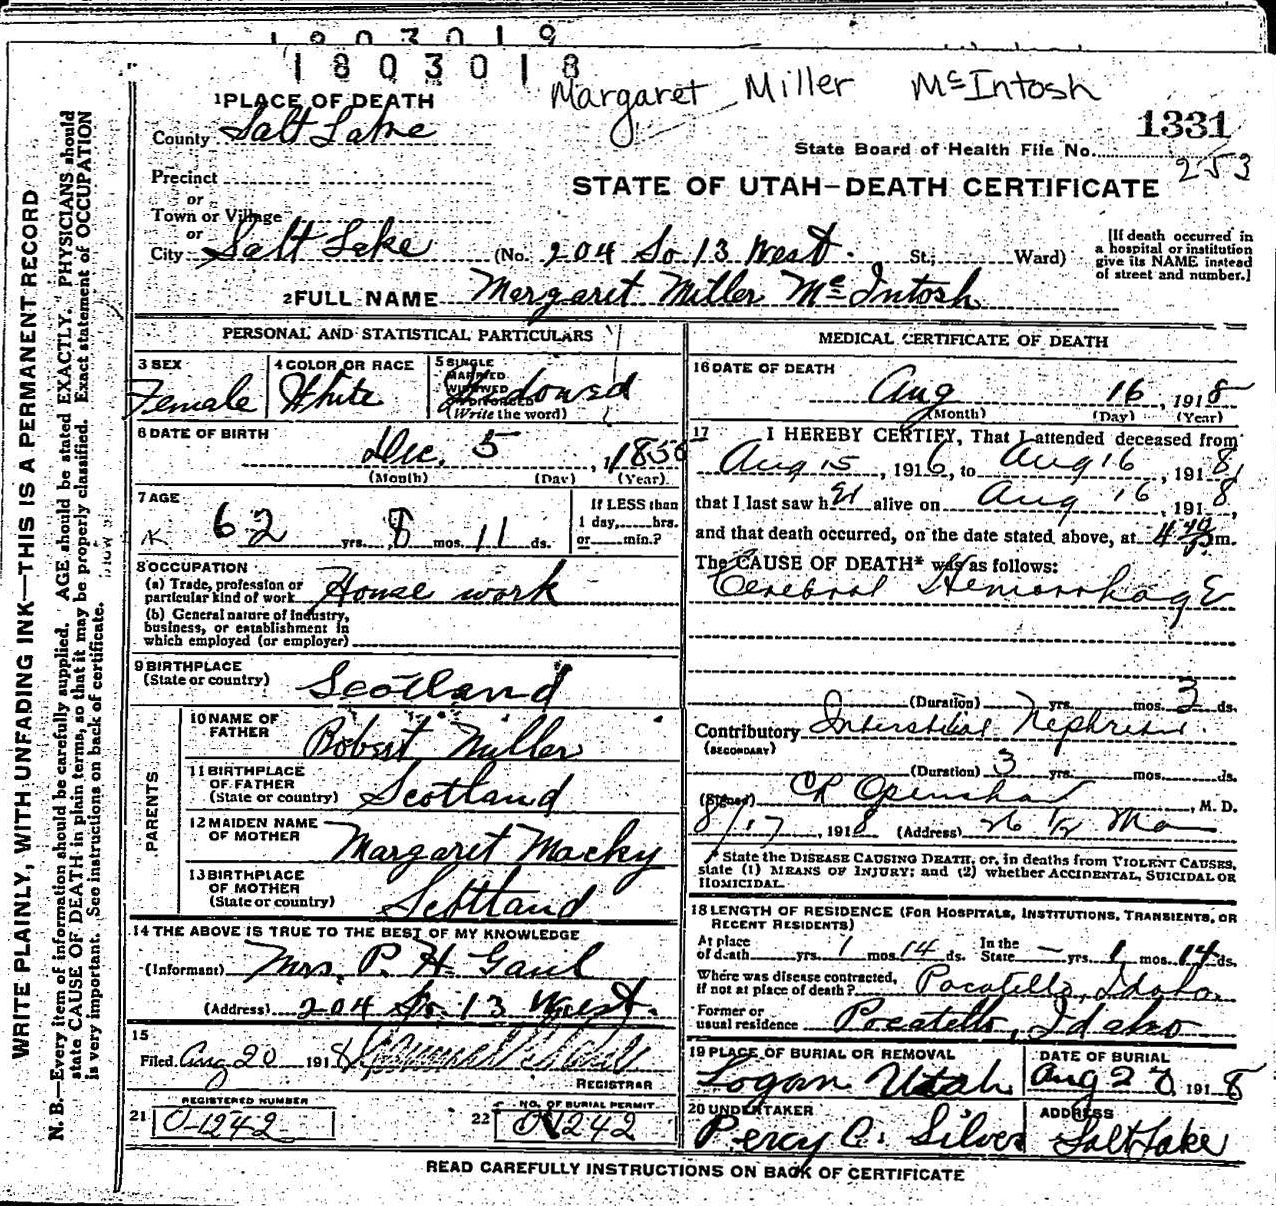 1803019
1803018
Margaret Miller McIntosh
1331
State Board of Health File No. 253
STATE OF UTAH—DEATH CERTIFICATE
1 PLACE OF DEATH
County Salt Lake
Precinct
or
Town or Village
or
City Salt Lake (No. 204 So 13 West. St.; Ward)
[If death occurred in a hospital or institution give its NAME instead of street and number.]
2 FULL NAME Margaret Miller McIntosh
PERSONAL AND STATISTICAL PARTICULARS
3 SEX Female
4 COLOR OR RACE White
5 SINGLE MARRIED WIDOWED OR DIVORCED (Write the word) Widowed
6 DATE OF BIRTH Dec. 5, 185
(Month) (Day) (Year)
7 AGE 62 yrs. 8 mos. 11 ds.
If LESS than 1 day, hrs. or min.?
8 OCCUPATION
(a) Trade, profession or particular kind of work House work
(b) General nature of industry, business, or establishment in which employed (or employer)
9 BIRTHPLACE (State or country) Scotland
PARENTS
10 NAME OF FATHER Robert Miller
11 BIRTHPLACE OF FATHER (State or country) Scotland
12 MAIDEN NAME OF MOTHER Margaret Macky
13 BIRTHPLACE OF MOTHER (State or country) Scotland
14 THE ABOVE IS TRUE TO THE BEST OF MY KNOWLEDGE
(Informant) Mrs. P. H. Gaul
(Address) 204 So. 13 West.
15
Filed Aug 20 1918
REGISTRAR
21 REGISTERED NUMBER 0-1242
22 NO. OF BURIAL PERMIT 01242
MEDICAL CERTIFICATE OF DEATH
16 DATE OF DEATH
Aug 16, 1918
(Month) (Day) (Year)
17 I HEREBY CERTIFY, That I attended deceased from
Aug 15, 1916, to Aug 16, 1918,
that I last saw her alive on Aug 16, 1918,
and that death occurred, on the date stated above, at 4 m.
The CAUSE OF DEATH* was as follows:
Cerebral Hemorrhage
(Duration) yrs. mos. 3 ds.
Contributory Interstitial Nephritis
(SECONDARY)
(Duration) 3 yrs. mos. ds.
(Signed) CR Openshaw, M. D.
8/17, 1918 (Address) 26 1/2 Main
* State the DISEASE CAUSING DEATH, or, in deaths from VIOLENT CAUSES,
state (1) MEANS OF INJURY; and (2) whether ACCIDENTAL, SUICIDAL OR
HOMICIDAL.
18 LENGTH OF RESIDENCE (FOR HOSPITALS, INSTITUTIONS, TRANSIENTS, OR
RECENT RESIDENTS)
At place of death yrs. 1 mos. 14 ds. In the State — yrs. 1 mos. 14 ds.
Where was disease contracted, if not at place of death? Pocatello, Idaho
Former or usual residence Pocatello, Idaho
19 PLACE OF BURIAL OR REMOVAL Logan Utah
DATE OF BURIAL Aug 20 1918
20 UNDERTAKER Percy C. Silver
ADDRESS Salt Lake
READ CAREFULLY INSTRUCTIONS ON BACK OF CERTIFICATE
WRITE PLAINLY, WITH UNFADING INK—THIS IS A PERMANENT RECORD
N. B.—Every item of information should be carefully supplied. AGE should be stated EXACTLY. PHYSICIANS should
state CAUSE OF DEATH in plain terms, so that it may be properly classified. Exact statement of OCCUPATION
is very important. See instructions on back of certificate.